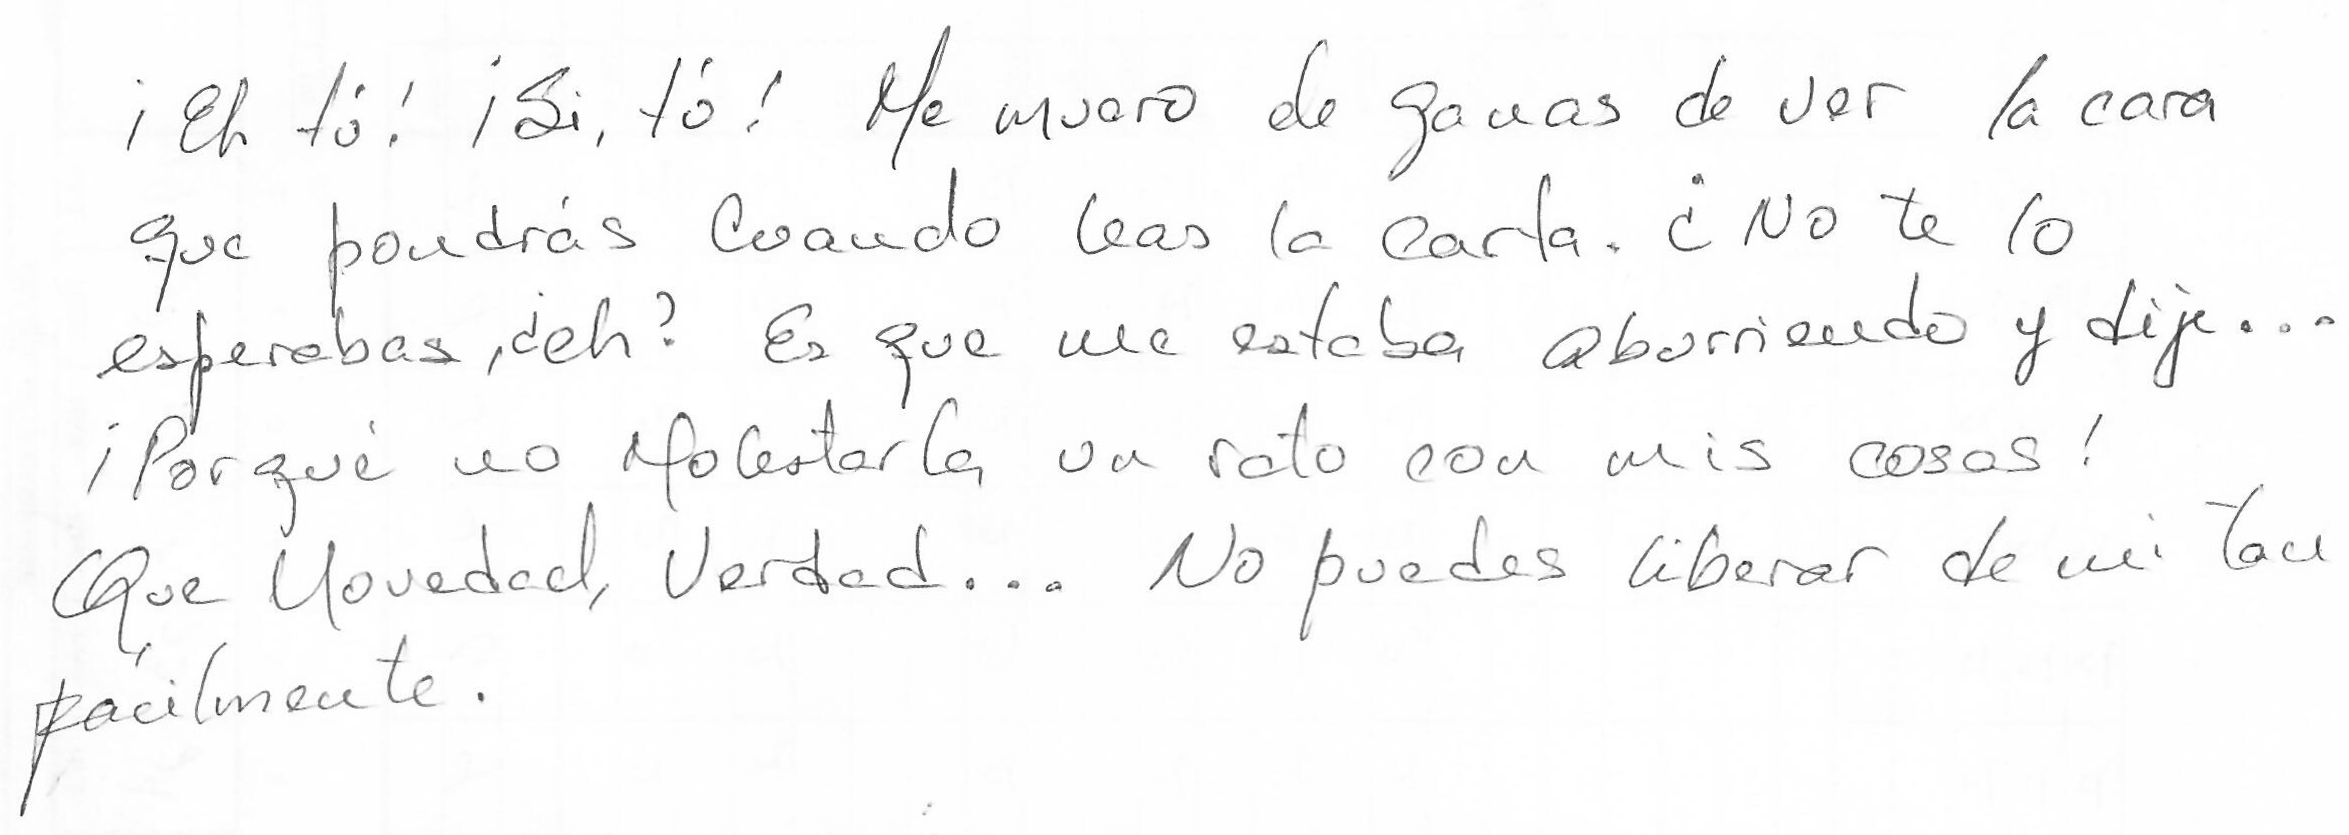 ¡Eh tú! ¡Si, tú! Me muero de ganas de ver la cara
que pondrás cuando leas la carta. ¿No te lo
esperabas, ¿eh? Es que me estaba aburriendo y dije...
¡Porqué no Molestarla un rato con mis cosas!
Que Novedad, Verdad... No puedes liberar de mi tan
fácilmente.